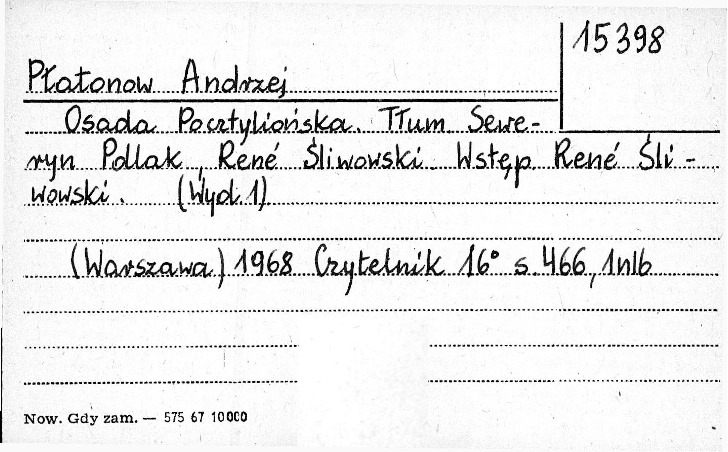 15398
Płatonow Andrzej
Osada Pocztyliońska. Tłum Sewe-
ryn Pollak, René Śliwowski. Wstęp René Śli-
wowski. (Wyd. 1)
(Warszawa) 1968 Czytelnik 16° s. 466, 1nlb
Now. Gdy zam. — 575 67 10000